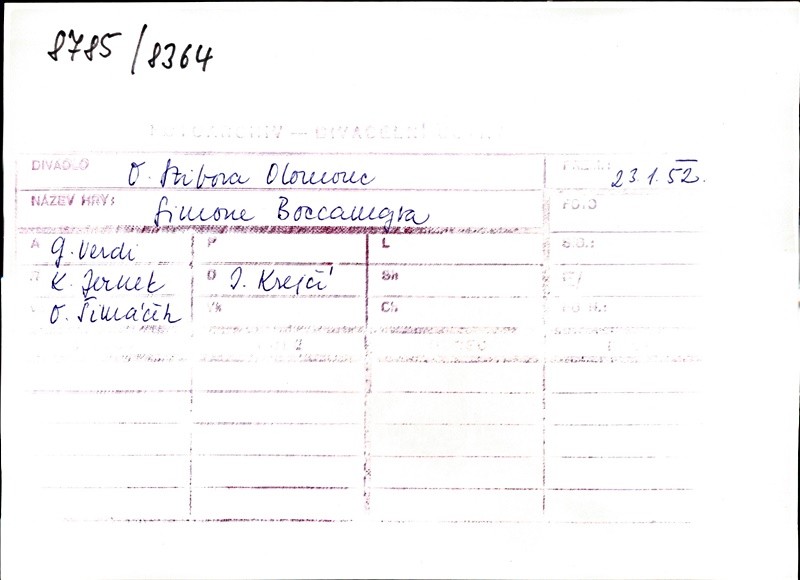 8785/8364
FOTOARCHIV — DIVADELNÍ ÚSTAV
DIVADLO O. Stibora Olomouc PREM.: 23.1.52.
NÁZEV HRY: Simone Boccanegra FOTO
A G. Verdi P L S.O.:
R K. Jernek D I. Krejčí Sh
O. Šimáček Vk Ch